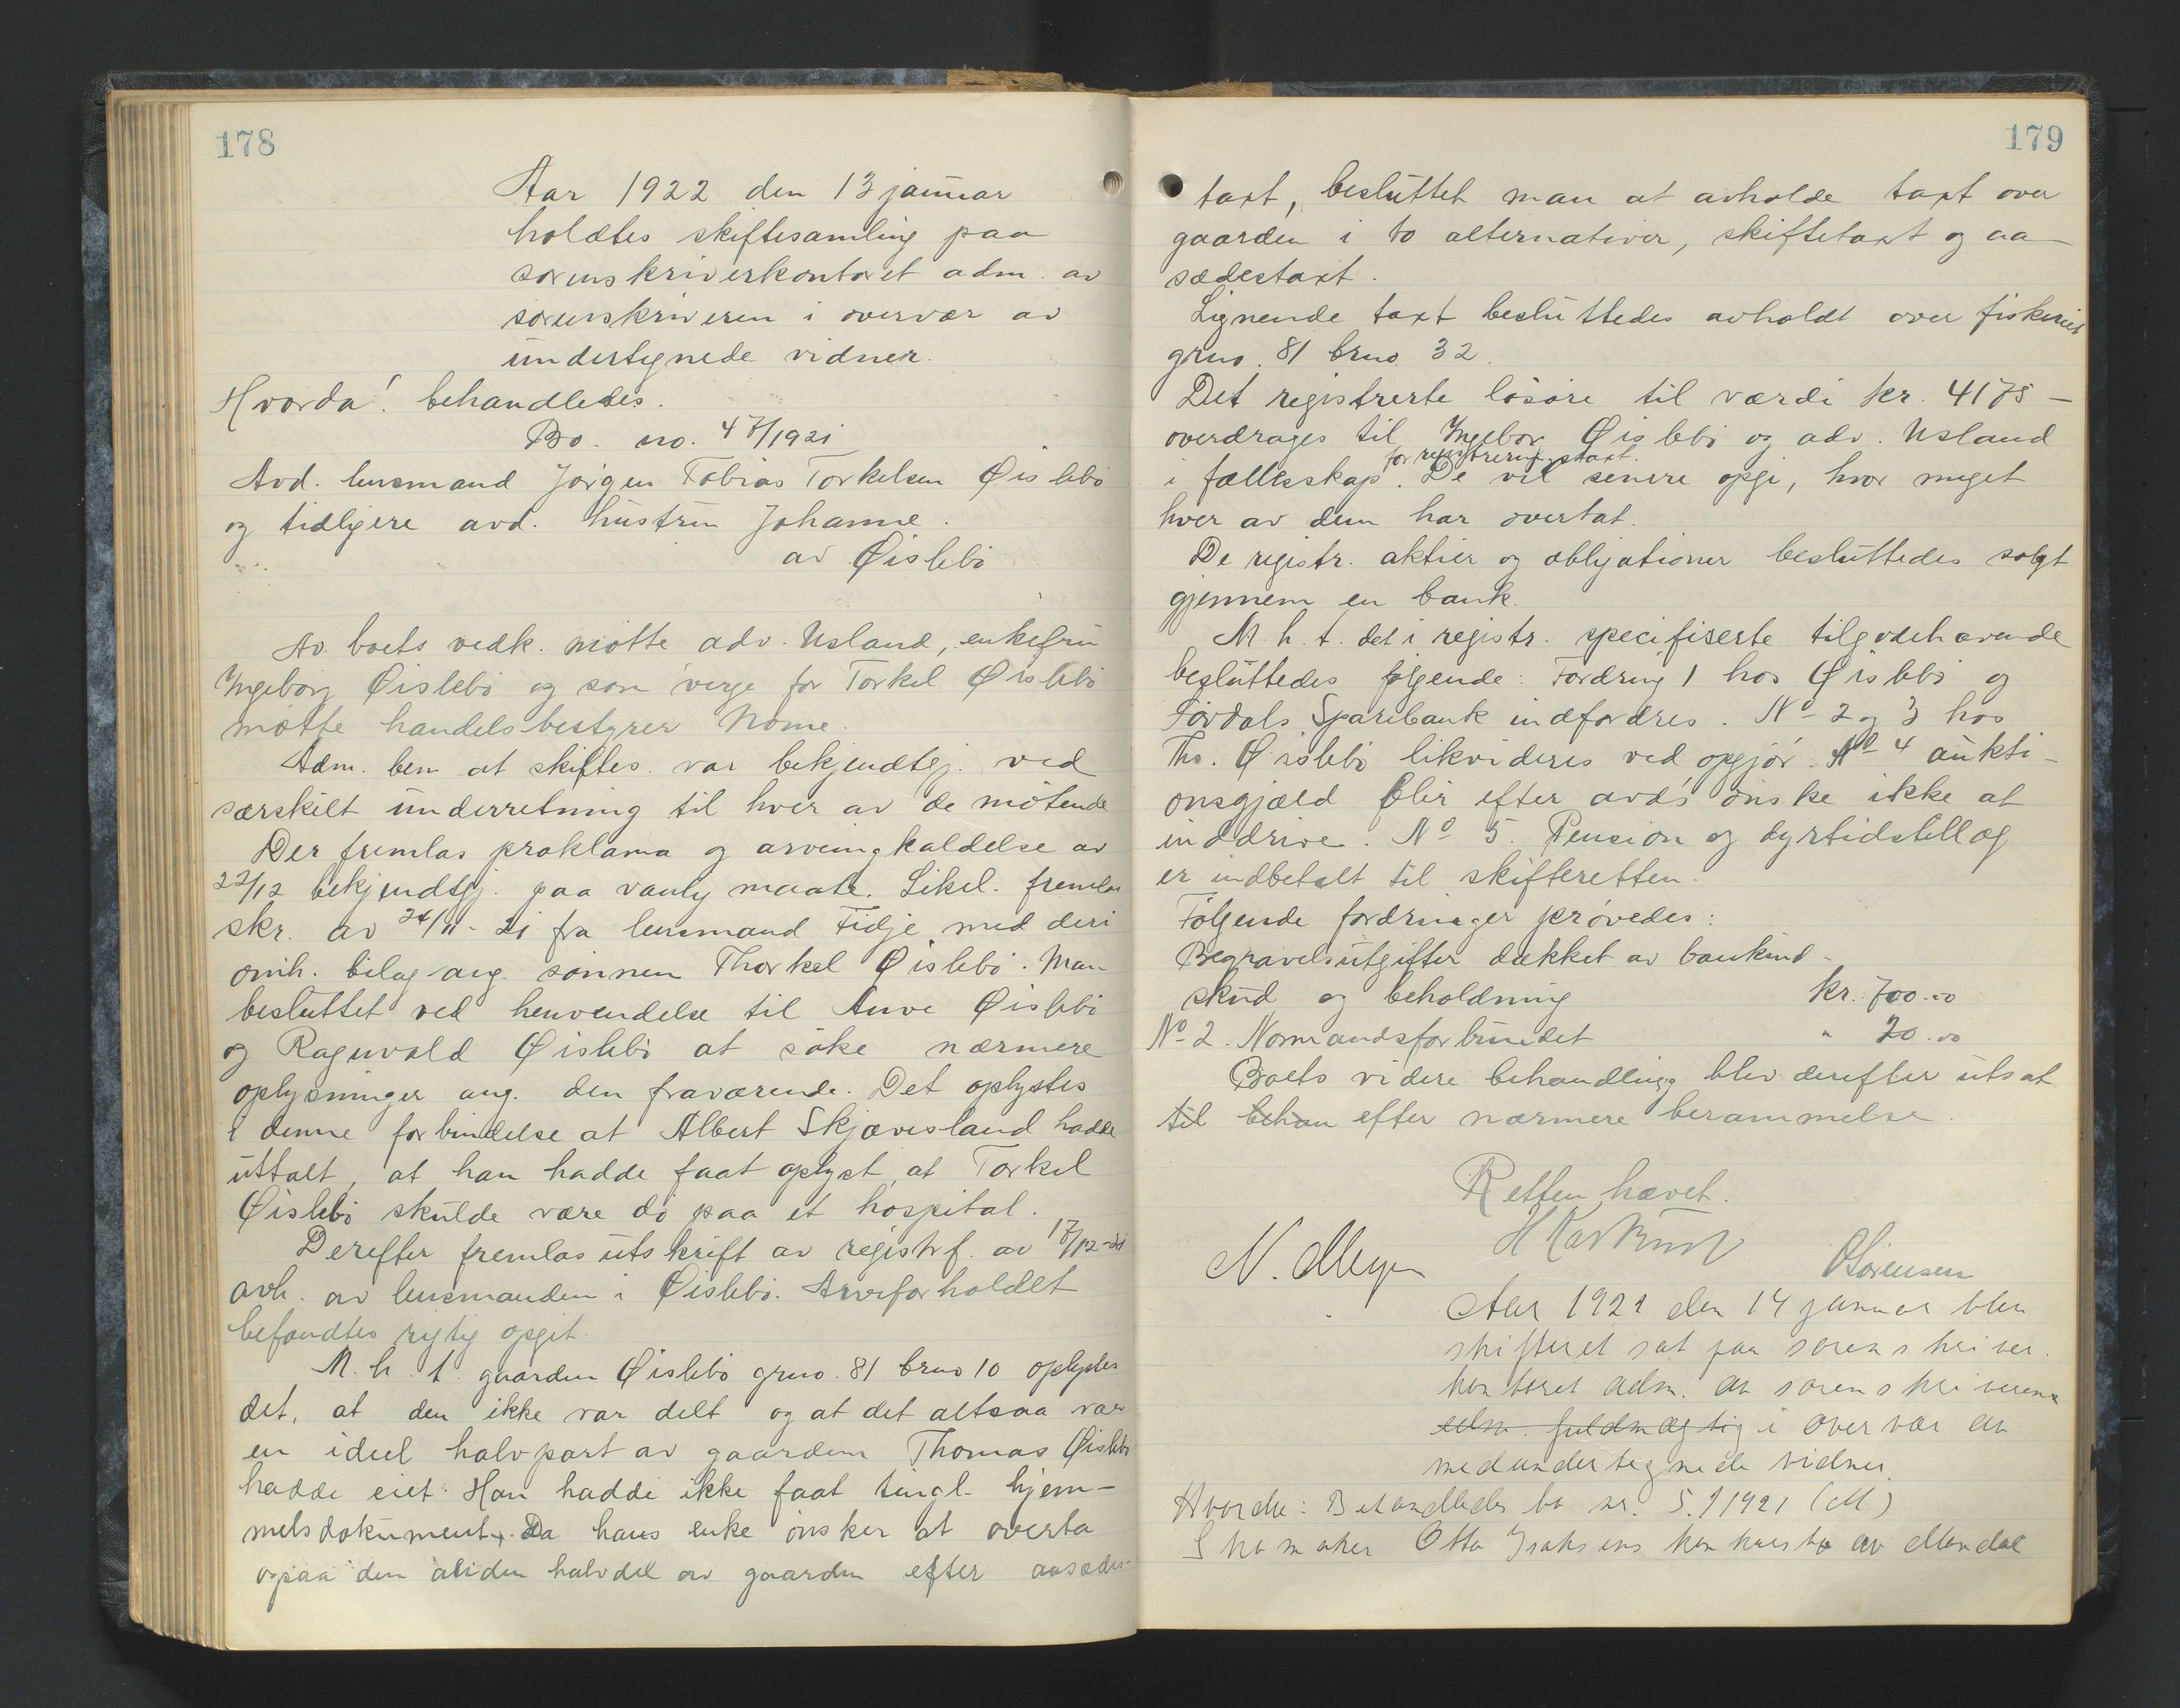 178
Aar 1922 den 13 januar
holdtes skiftesamling paa
sorenskriverkontoret adm. av
sorenskriveren i overvær av
undertegnede vidner.
Hvorda! behandledes.
Bo. no. 47/1921
Avd. lensmand Jørgen Tobias Torkelsen Øislebø
og tidligere avd. hustru Johanne.
av Øislebø
Av boets vedk. møtte adv. Usland, enkefru
Ingeborg Øislebø og som verge for Torkel Øislebø
møtte handelsbestyrer Nome.
Adm. bem at skiftes. var bekjendtgj. ved
særskilt underretning til hver av de møtende
Der fremlas proklama og arveingkaldelse av
22/12 bekjendtgj. paa vanlig maate. Likel. fremlas
skr. av 24/11-21 fra lensmand Tidje med deri
omh. bilag ang. sønnen Thorkel Øislebø. Man
besluttet ved henvendelse til Anve Øislebø
og Ragnvald Øislebø at søke nærmere
oplysninger ang. den fraværende. Det oplystes
i denne forbindelse at Albert Skjævesland hadde
uttalt, at han hadde faat oplyst, at Torkel
Øislebø skulde være dø paa et hospital.
Derefter fremlas utskrift av registrf. av 17/12-21
avh. av lensmanden i Øislebø. Arveforholdet
befandtes rigtig opgit.
M. h. t. gaarden Øislebø grno. 81 brno 10 oplystes
det, at den ikke var delt og at det altsaa var
en ideel halvpart av gaarden Thomas Øislebø
hadde eiet. Han hadde ikke faat tingl. hjem-
melsdokument. Da hans enke ønsker at overta
ogsaa den anden halvdel av gaarden efter aasædes-
179
taxt, besluttet man at avholde taxt over
gaarden i to alternativer, skiftetaxt og aa-
sædestaxt.
Lignende taxt besluttedes avholdt over fiskeriet
grno. 81 brno. 32.
Det registrerte løsøre til værdi kr. 4175 -
overdrages til Ingebor Øislebø og adv. Usland
for registreringstaxt.
i fællesskap. De vil senere opgi, hvor meget
hver av dem har overtat.
De registr. aktier og obligationer besluttedes solgt
gjennem en bank.
M. h. t. det i registr. specifiserte tilgodehavende
besluttedes følgende: Fordring 1 hos Øislebø og
Sparebank indfordres. No 2 og 3 hos
Th. Øislebø likvideres ved opgjør. No 4 aukti-
onsgjæld blir efter avds ønske ikke at
inddrive. No 5. Pension og dyrtidstillæg
er indbetalt til skifteretten.
Følgende fordringer prøvedes:
Begravelsutgifter dækket av bankind-
skud og beholdning kr. 700.00
No 2. Normandsforbundet " 20.00
Boets videre behandling blev derefter utsat
til behan efter nærmere berammelse.
Retten hævet.
N. Meyer
O Sørensen
Aar 1921 den 14 januar blev
skifteret sat paa sorenskriver.
kontoret adm. av sorenskriveren
adm. fuldmægtig i overvær av
medundertegnede vidner.
Hvorda: Behandledes bo nr. 5/1921 (M)
Skomaker Otto Isaksens konkursbo av Mandal